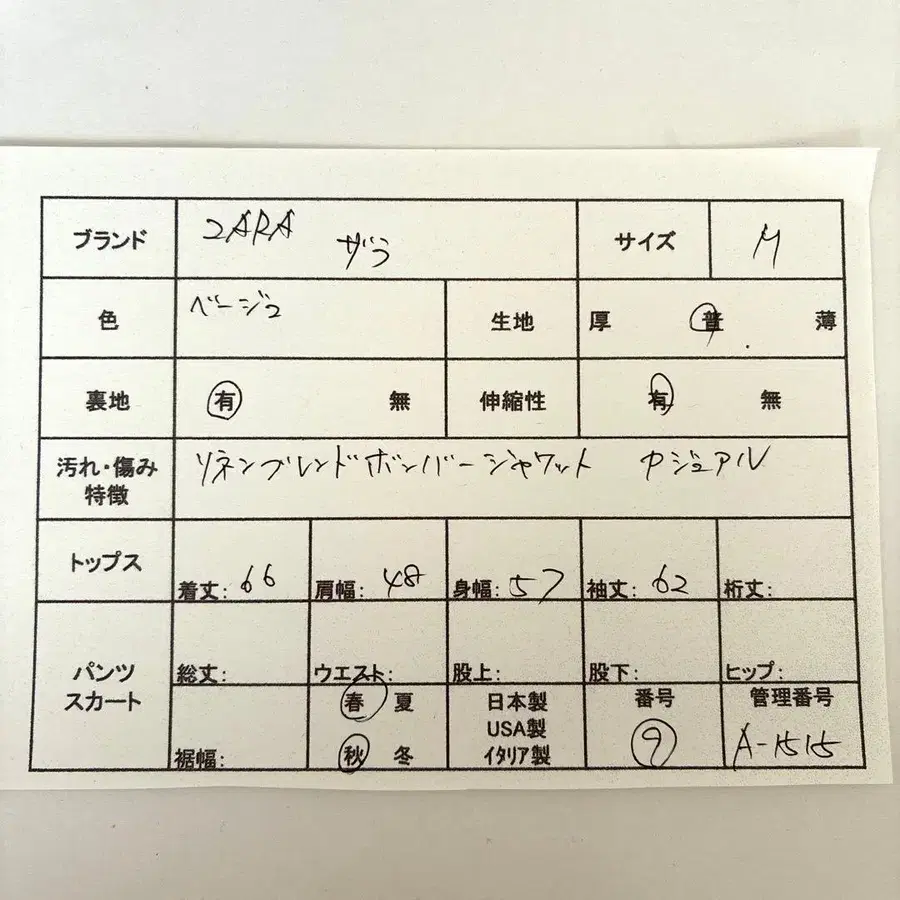 ブランド ZARA ザラ サイズ M
色 ベージュ 生地 厚 普 薄
裏地 有 無 伸縮性 有 無
汚れ・傷み
特徴
リネンブレンドボンバージャケット カジュアル
トップス 着丈: 66 肩幅: 48 身幅: 57 袖丈: 62 裄丈:
パンツ
スカート
総丈: ウエスト: 股上: 股下: ヒップ:
裾幅:
春 夏
秋 冬
日本製
USA製
イタリア製
番号
9
管理番号
A-1515